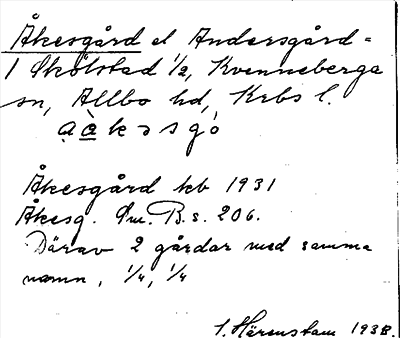 Åkesgård el Andersgård =
1 Skölstad 1/2, Kvenneberga
sn, Allbo hd, Krbs l.
kəsgó
Åkesgård kb 1931
Åkesg. Sm. B. s. 206.
Därav 2 gårdar med samma
namn, 1/4, 1/4
Härenstam 1938.